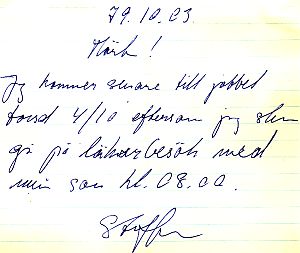 29.10.03
Märk!
Jag kommer senare till jobbet
torsd 4/10 eftersom jag ska
gå på läkarbesök med
min son kl. 08.00.
Staffan